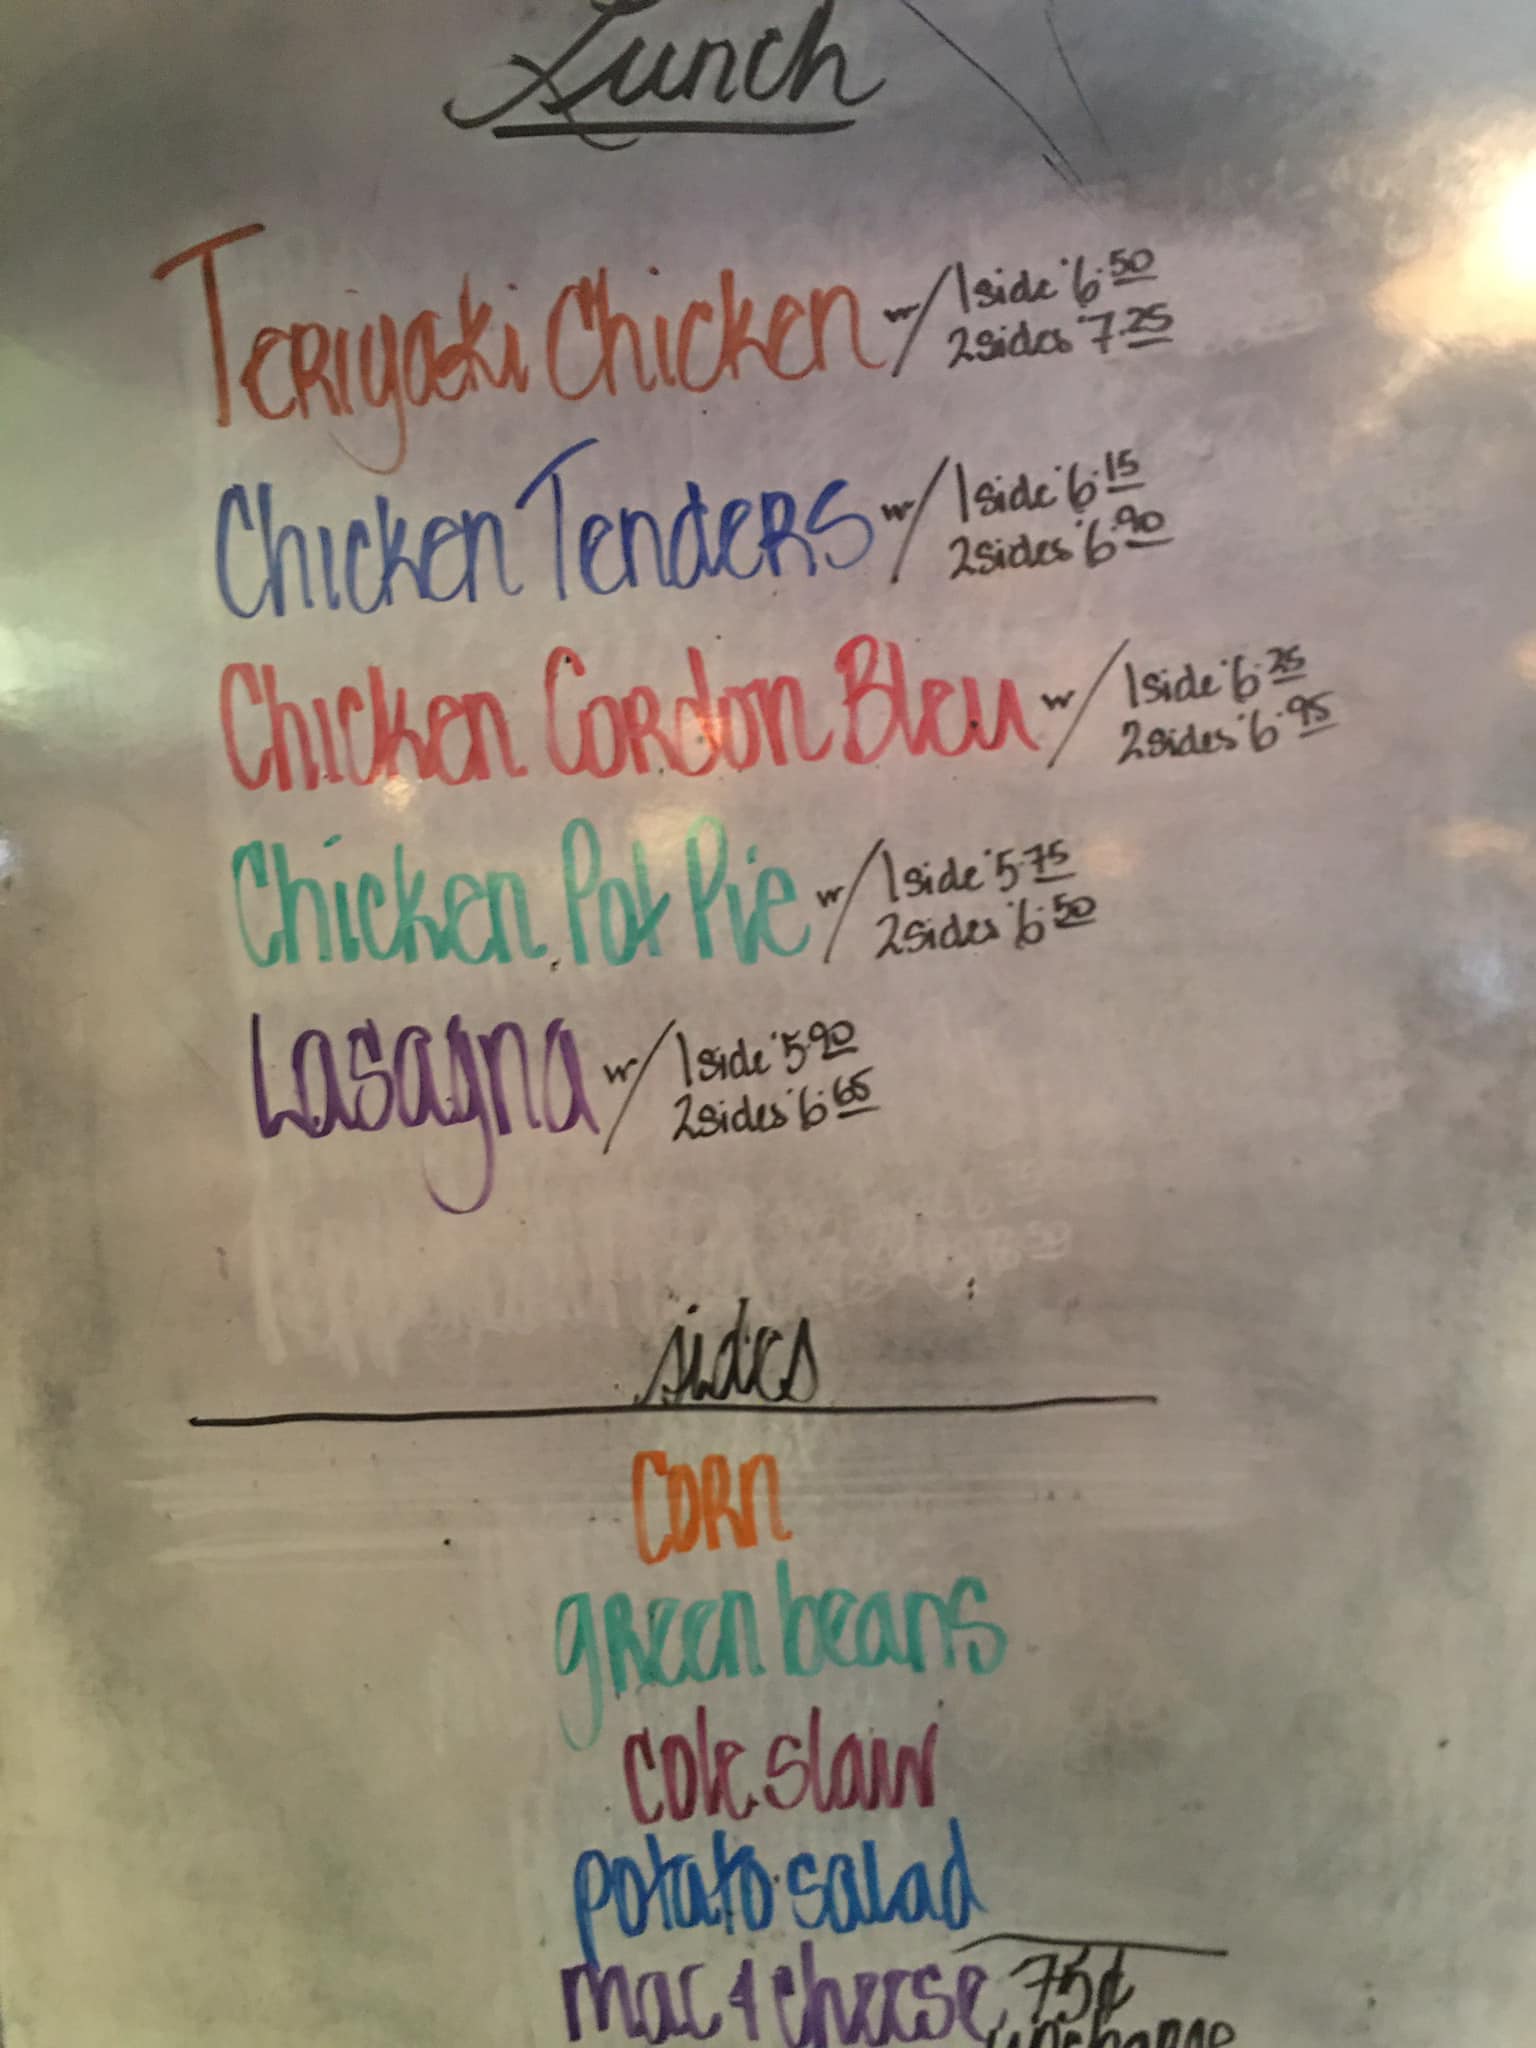 Lunch
Teriyaki Chicken w/ 1 side 6.50
2 sides 7.25
Chicken Tenders w/ 1 side 6.15
2 sides 6.90
Chicken Cordon Bleu w/ 1 side 6.25
2 sides 6.95
Chicken Pot Pie w/ 1 side 5.75
2 sides 6.50
Lasagna w/ 1 side 5.90
2 sides 6.65
sides
corn
green beans
cole slaw
potato salad
mac & cheese 75¢
upcharge